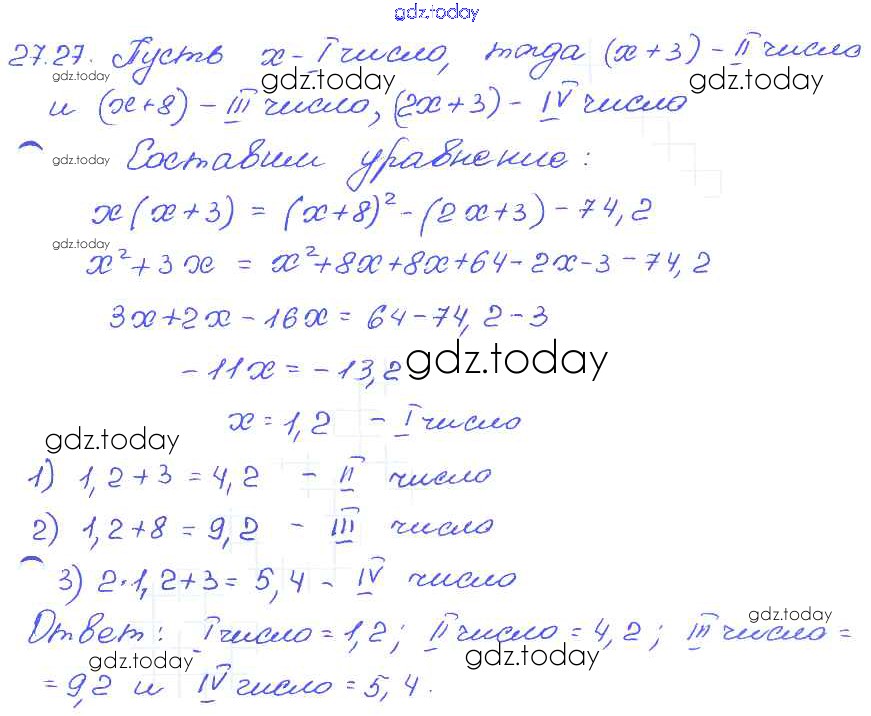 gdz.today
27.27. Пусть x - I число, тогда (x+3) - II число
gdz.today gdz.today gdz.today
и (x+8) - III число, (2x+3) - IV число
gdz.today Составим уравнение:
x(x+3) = (x+8)² - (2x+3) - 74,2
gdz.today
x² + 3x = x² + 8x + 8x + 64 - 2x - 3 - 74,2
3x + 2x - 16x = 64 - 74,2 - 3
-11x = -13,2 gdz.today
x = 1,2 - I число
gdz.today
1) 1,2 + 3 = 4,2 - II число
2) 1,2 + 8 = 9,2 - III число
3) 2·1,2 + 3 = 5,4 - IV число
gdz.today
Ответ: I число = 1,2; II число = 4,2; III число =
gdz.today gdz.today
= 9,2 и IV число = 5,4.